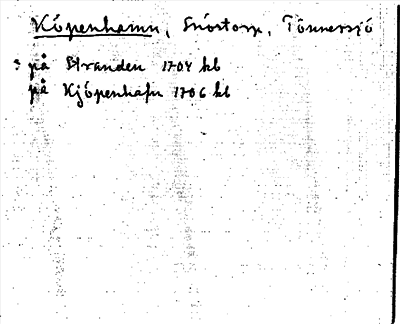 Köpenhamn, Snöstorp, Tönnersjö
: på Stranden 1704 kb
på Kjöpenhafn 1706 kb